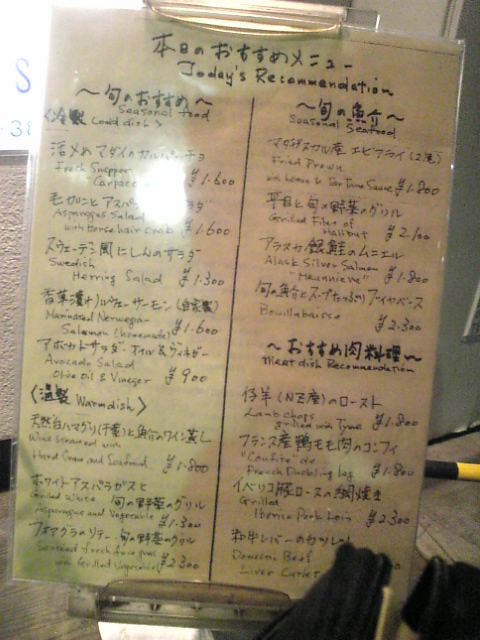 本日のおすすめメニュー
Today's Recommendation
〜旬のおすすめ〜
Seasonal food
〈冷製 Could dish's
活〆め マダイのカルパッチョ
Fresh Snepper
Carpaccio ¥1.600
毛ガニとアスパラ
Asparagus Salad
with Horsehair Crab ¥1.600
スウェーデン風 にしんのサラダ
Swedish
Herring Salad ¥1.300
香草漬け ノルウェーサーモン (自家製)
Marinated Norwegian
Salamon (homemade) ¥1.600
アボカドサラダ オイル&ヴィネガー
Avocado Salad
Olive oil & Vineger ¥900
〈温製 Warmdish〉
天然白ハマグリ(千葉)と魚介のワイン蒸し
Wine steamed with
Hard Cram and Seafood ¥1.800
ホワイトアスパラガスと
旬の野菜のグリル
Grilled White
Asparagus and Vegetable ¥1.300
フォアグラのソテー 旬の野菜のグリル
Sauteed fresh foie gras
with Grilled Vegetables ¥2.300
〜旬の魚介〜
Seasonal Seafood
マダガスカル産 エビフライ (2尾)
Fried Prown
with lemon & TarTare Sauce ¥1.800
平目と旬の野菜のグリル
Grilled Filet of
Halibut ¥2.100
アラスカ銀鮭のムニエル
Alask Silver Salmon
"Meunniere" ¥1.800
旬の魚介とスープたっぷりブイヤベース
Bouillabaisse ¥2.300
〜おすすめ肉料理〜
Meat dish Recommendation
仔羊(NZ産)のロースト
Lamb Chops
grilled with Tyme ¥1.800
フランス産 鴨モモ肉のコンフィ
"Confite" de
French Duckling leg ¥1.800
イベリコ豚ロースの網焼き
Grilled
Iberico Pork Loin ¥2.300
和牛レバーのカツレツ
Domestic Beef
Liver Cutlet